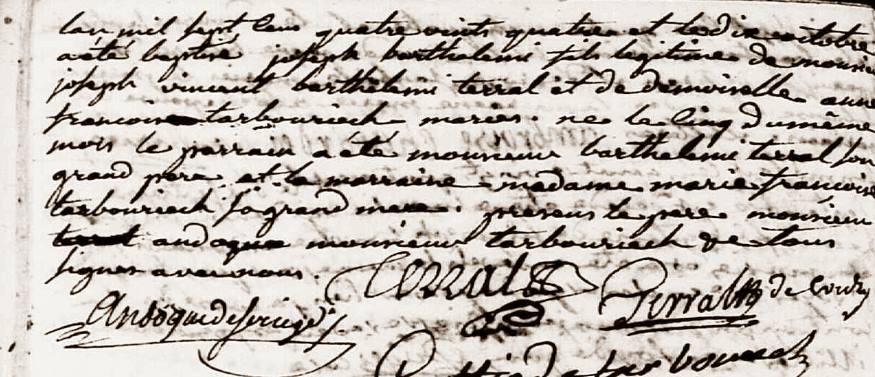 lan mil sept cens quatre vints quatre et le dix octobre
a été baptisé joseph barthelemi fils legitime de monsieur
joseph vincent barthelemi terral et de demoiselle anne
francoise tarbouriech mariés. né le cinq du même
mois le parrain a été monsieur barthelemi terral son
grand pere et la marraine madame marie francoise
tarbouriech sa grand mere. presens le pere monsieur
andoque monsieur tarbouriech de tous
signes avec nous.
Terral
Terral de
Andoque de seriege
tarbouriech